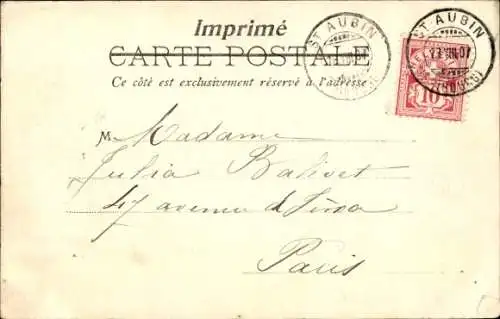 Imprimé
CARTE POSTALE
Ce côté est exclusivement réservé à l'adresse
ST AUBIN
ST AUBIN
10
M Madame
Julia Balivet
47 avenue d'Iéna
Paris